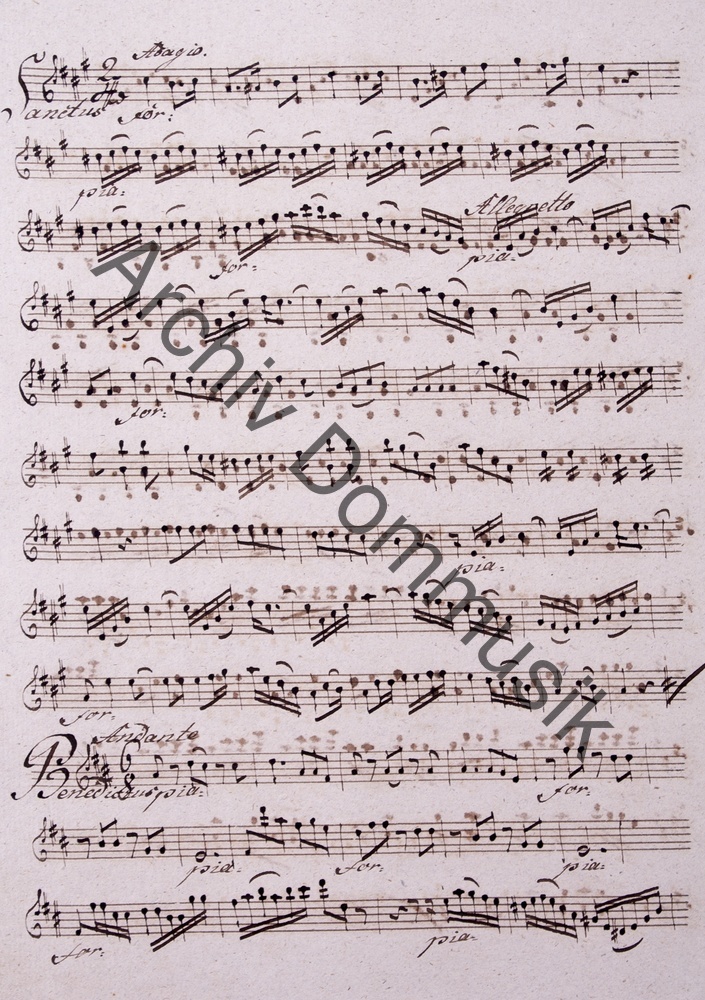 Adagio.
Sanctus for:
pia:
Allegretto
for: pia:
for:
pia:
for:
Andante
Benedictus pia: for:
pia: for: pia:
for: pia:
Archiv Dommusik